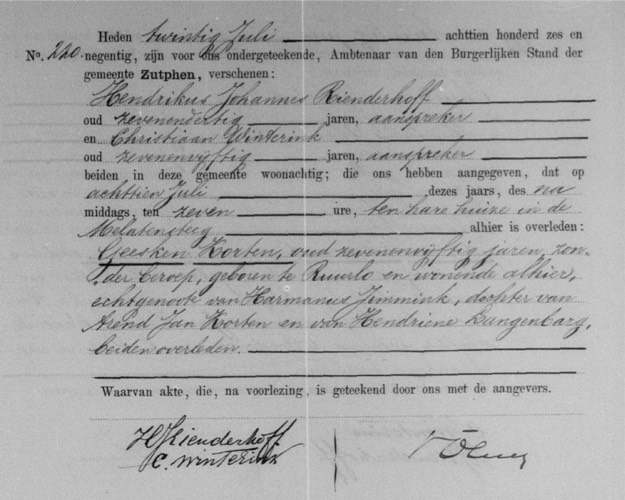 Heden twintig Juli achttien honderd zes en
No. 220. negentig, zijn voor ons ondergeteekende, Ambtenaar van den Burgerlijken Stand der
gemeente Zutphen, verschenen:
Hendrikus Johannes Rienderhoff
oud zevenendertig jaren, aanspreker
en Christiaan Winterink
oud zevenenvijftig jaren, aanspreker
beiden in deze gemeente woonachtig; die ons hebben aangegeven, dat op
achttien Juli dezes jaars, des na
middags, ten zeven ure, ten hare huize in de
Melatensteeg alhier is overleden:
Geesken Korten, oud zevenenvijftig jaren, zon-
der beroep, geboren te Ruurlo en wonende alhier,
echtgenoote van Harmanus Jimmink, dochter van
Arend Jan Korten en van Hendriene Langenbarg,
beiden overleden.
Waarvan akte, die, na voorlezing, is geteekend door ons met de aangevers.
HJRienderhoff
C. Winterink